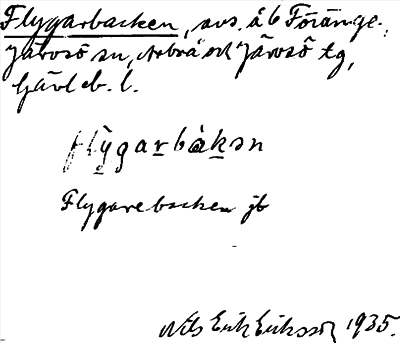 Flygarbacken, avs. å 6 Föränge,
Järvsö sn, Arbrå och Järvsö tg,
Gävleb. l.
flỳgarbàkən
Flygarebacken jb
Nils Erik Eriksson 1935.